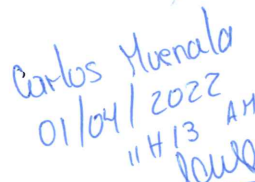 Carlos Muenala
01/04/2022
11H13 AM